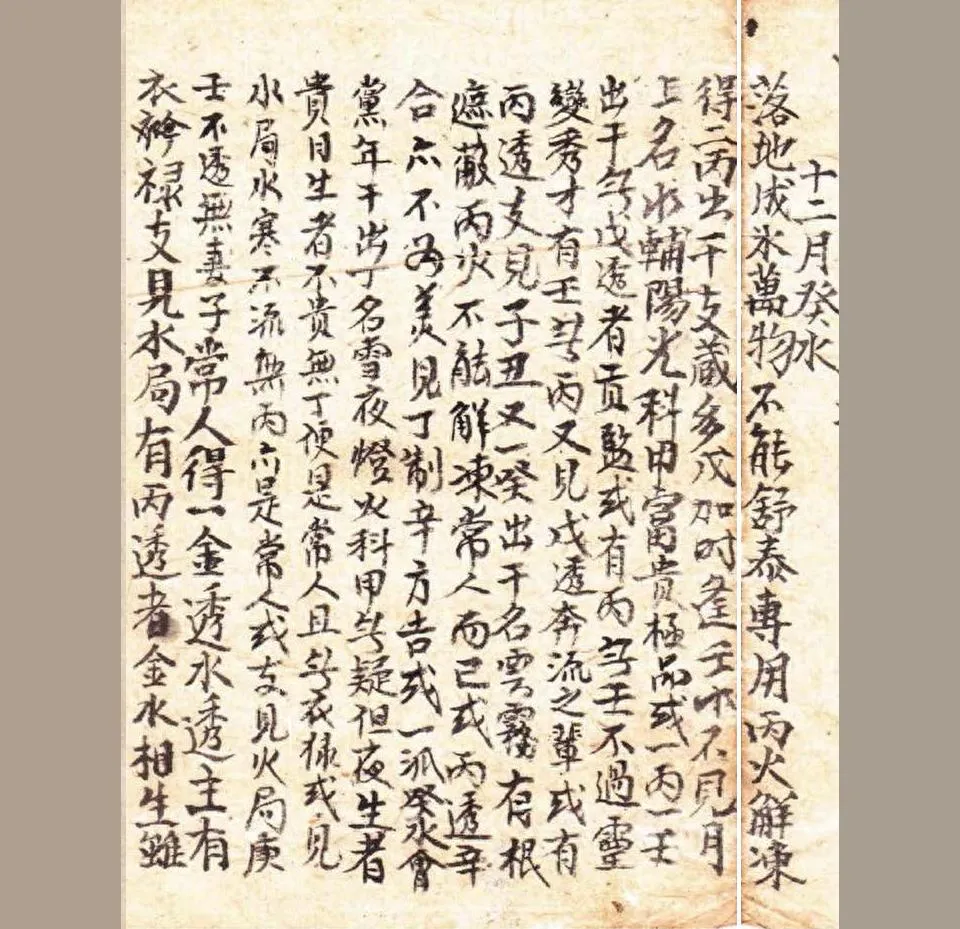 十二月癸水
落地成氷萬物不能舒泰專用丙火解凍
得二丙出干支藏多戊加时逢壬巾不見月
上名水輔陽光科甲富貴極品或一丙一壬
出干无戊透者貢監或有丙无壬不過靈
變秀才有壬无丙又見戊透奔流之輩或有
丙透支見子丑又一癸出干名雲霧有根
遮蔽丙火不能解凍常人而已或丙透辛
合亦不為美見丁制辛方吉或一派癸會
黨年干出丁名雪夜燈火科甲无疑但夜生者
貴日生者不貴無丁便是常人且无衣祿或見
水局水寒不流無丙亦是常人或支見火局庚
壬不透無妻子常人得一金透水透主有
衣祿支見水局有丙透者金水相生雖